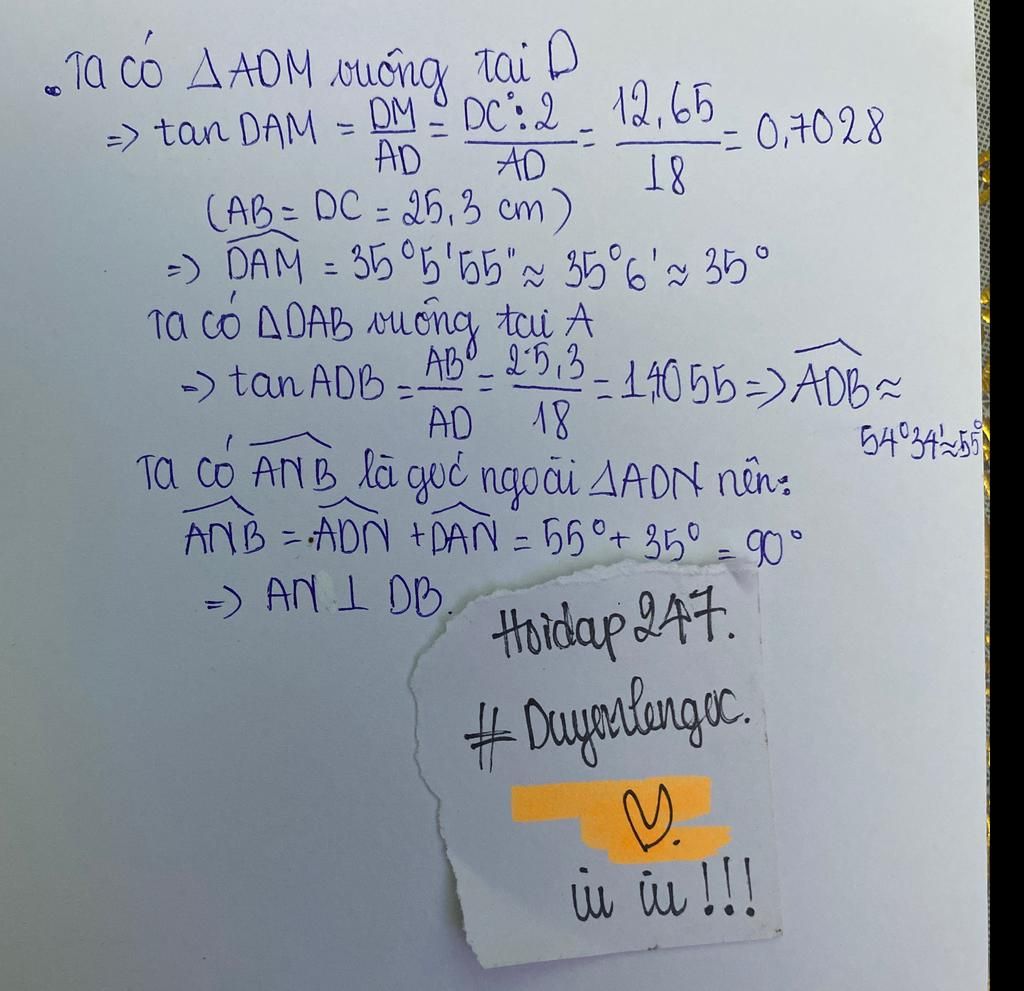 . Ta có ΔADM vuông tại D
=> tan DAM = DM/AD = DC:2/AD = 12,65/18 = 0,7028
(AB = DC = 25,3 cm)
=> DAM = 35°5'55" ≈ 35°6' ≈ 35°
Ta có ΔDAB vuông tại A
=> tan ADB = AB/AD = 25,3/18 = 1,4055 => ADB ≈
54°34' ≈ 55°
Ta có ANB là góc ngoài ΔADN nên:
ANB = ADN + DAN = 55° + 35° = 90°
=> AN ⊥ DB.
Hoidap247.
#Duyenlengoc.
iu iu !!!